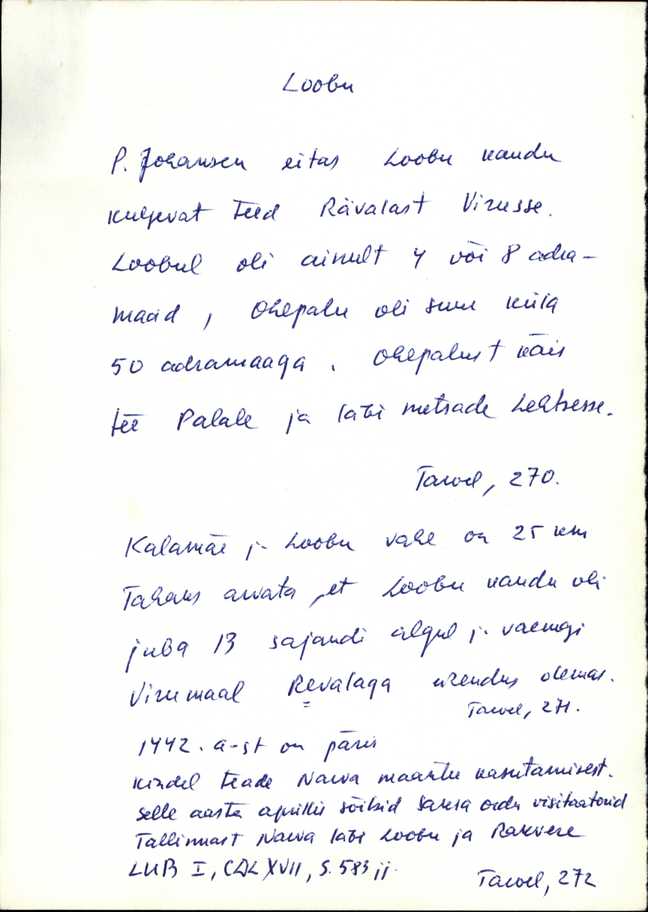 Loobu
P. Johansen eitas Loobu kaudu
kulgevat teed Rävalast Virusse.
Loobul oli ainult 4 või 8 adra-
maad, Ohepalu oli suur küla
50 adramaaga. Ohepalust käis
tee Palale ja läbi metsade Lehtsesse.
Tarvel, 270.
Kalamäe j. Loobu vahe on 25 km
Tahaks arvata, et Loobu kaudu oli
juba 13 sajandi algul j. varemgi
Virumaal Revalaga ühendus olemas.
Tarvel, 271.
1442. a-st on päris
kindel teade Narva maantee kasutamisest.
Selle aasta aprillis sõitsid Saksa ordu visitaatorid
Tallinnast Narva läbi Loobu ja Rakvere
LUB I, S. 583 jj.
Tarvel, 272